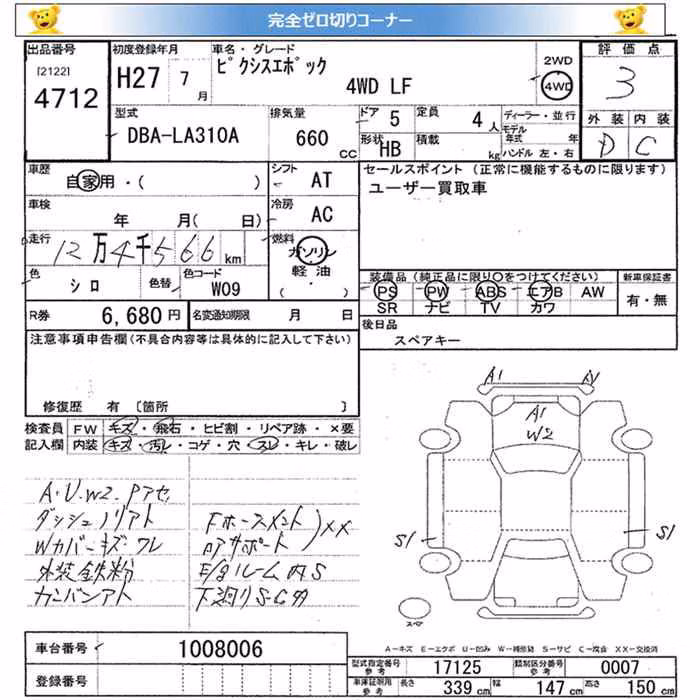 完全ゼロ切りコーナー
出品番号
[2122]
4712
初度登録年月
H27 7月
車名・グレード
ピクシスエポック
4WD LF
2WD
4WD
評価点
3
外装 内装
D C
型式
DBA-LA310A
排気量
660 CC
ドア 5
定員 4人
形状 HB
積載 kg
ディーラー・並行
モデル年式 年
ハンドル 左・右
車歴
自家用・( )
シフト AT
車検
年 月( 日)
冷房 AC
走行
12万4千566 km
燃料
ガソリン
軽油
( ・ )
色
シロ
色替
色コード
W09
R券 6,680円
名変通知期限 月 日
セールスポイント(正常に機能するものに限ります)
ユーザー買取車
装備品(純正品に限り○をつけてください)
PS PW ABS エアB AW
SR ナビ TV カワ
新車保証書
有・無
後日品
スペアキー
注意事項申告欄(不具合内容等は具体的に記入して下さい)
修復歴 有 [箇所 ]
検査員 FW キズ・飛石・ヒビ割・リペア跡・×要
記入欄 内装 キズ・汚レ・コゲ・穴・スレ・キレ・破レ
A・U・W2・Pアセ
ダッシュノリアト
Wカバーキズ・ワレ
外装鉄粉
カンバンアト
Fホースメント
ロアサポート
XX
E/gルーム内S
下廻りS・C有
A1
A1
A1
W2
S1
S1
スペア
A-キズ E-エクボ U-凹み W-補修跡 S-サビ C-腐食 XX-交換済
車台番号 1008006
登録番号
型式指定番号 参考 17125
類別区分番号 参考 0007
車庫証明用 参考 長さ 339 cm 幅 147 cm 高さ 150 cm